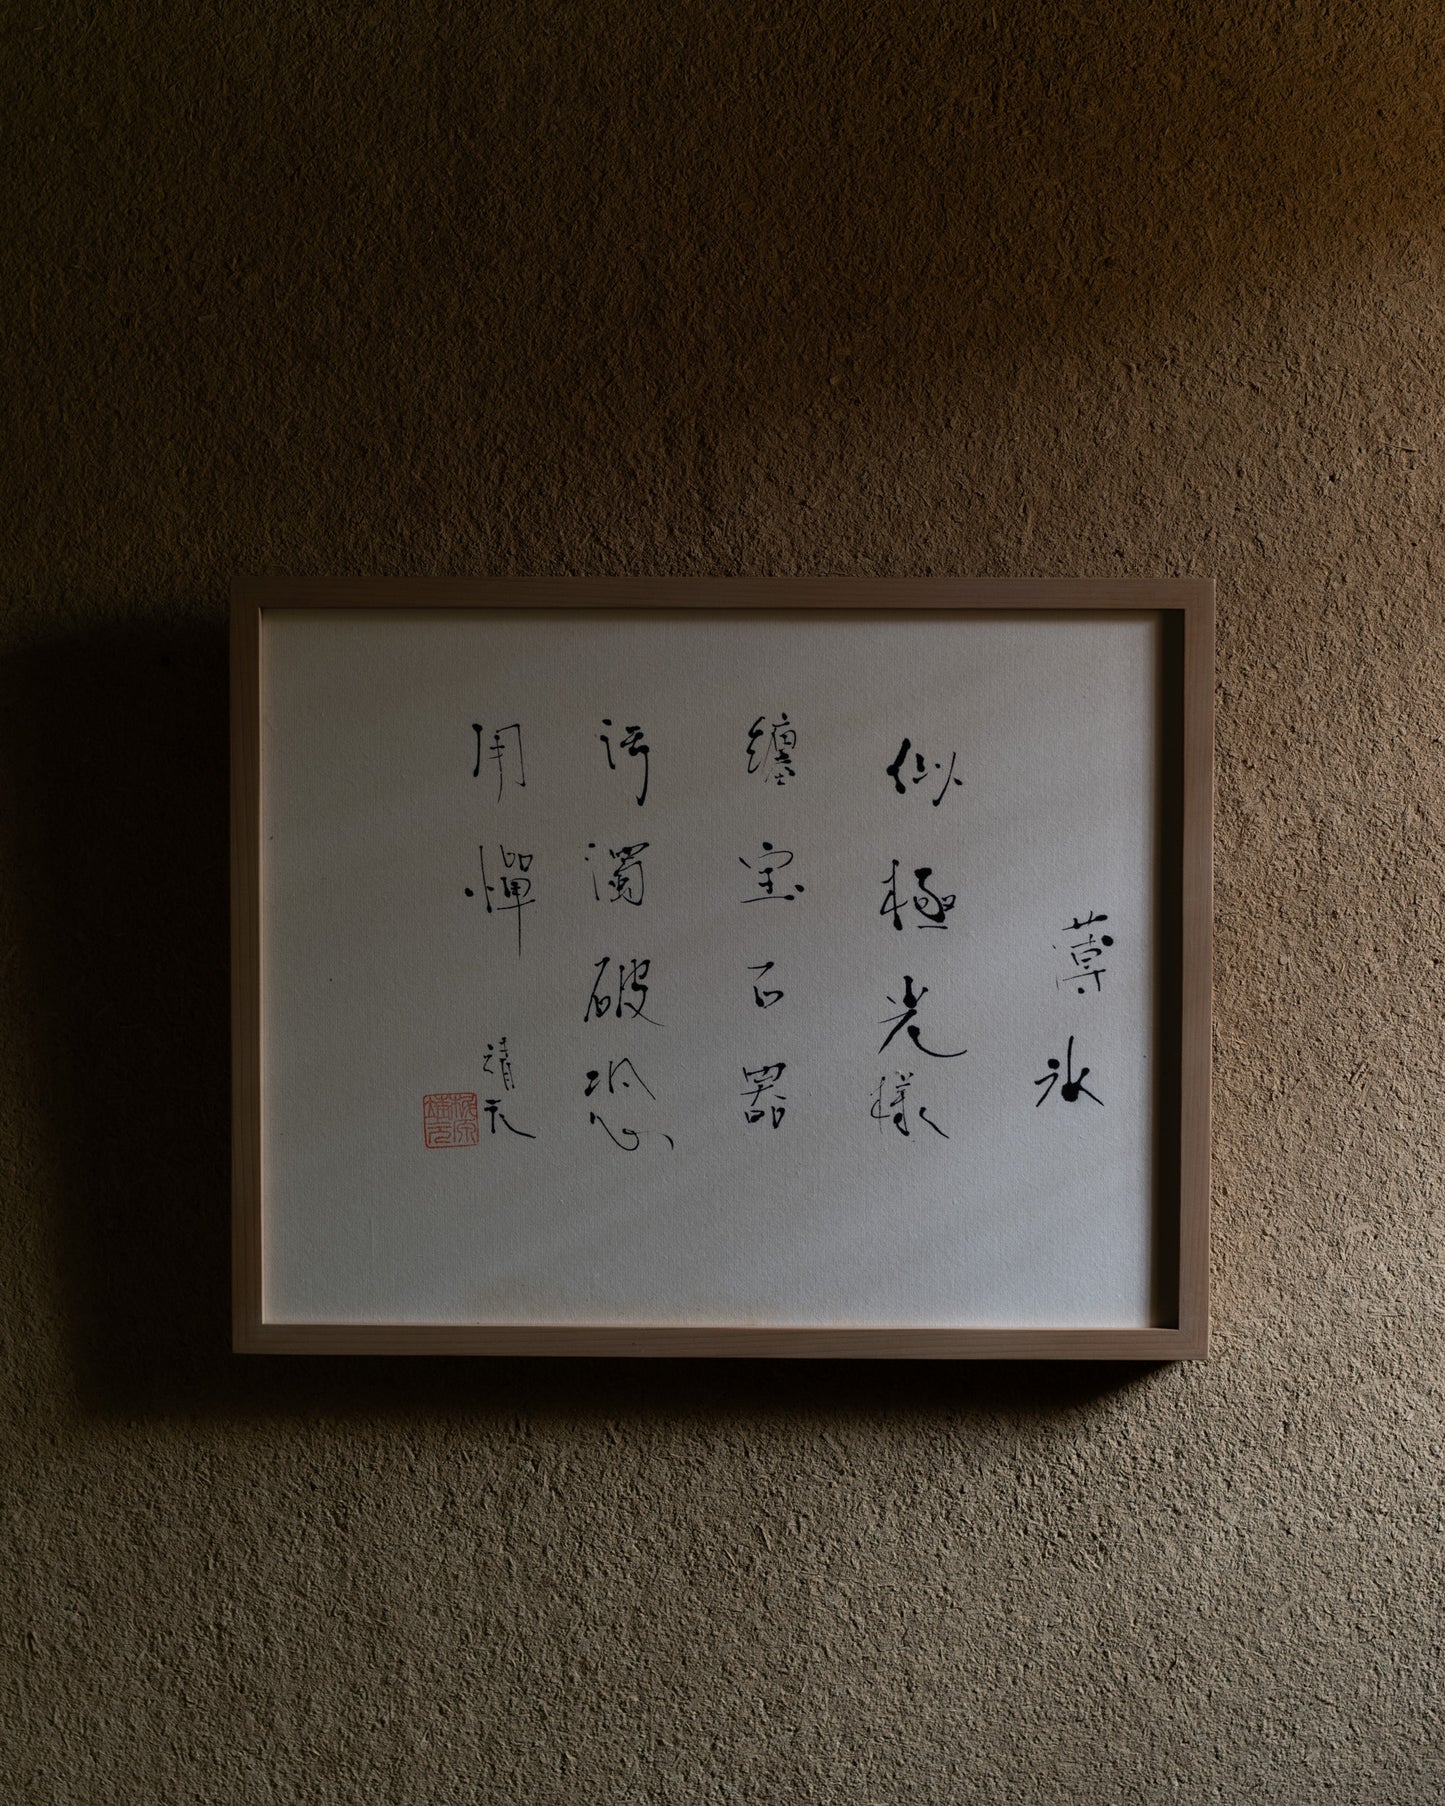 薄氷
似極光様
纏宝石器
汚濁破恐
用憚
靖元